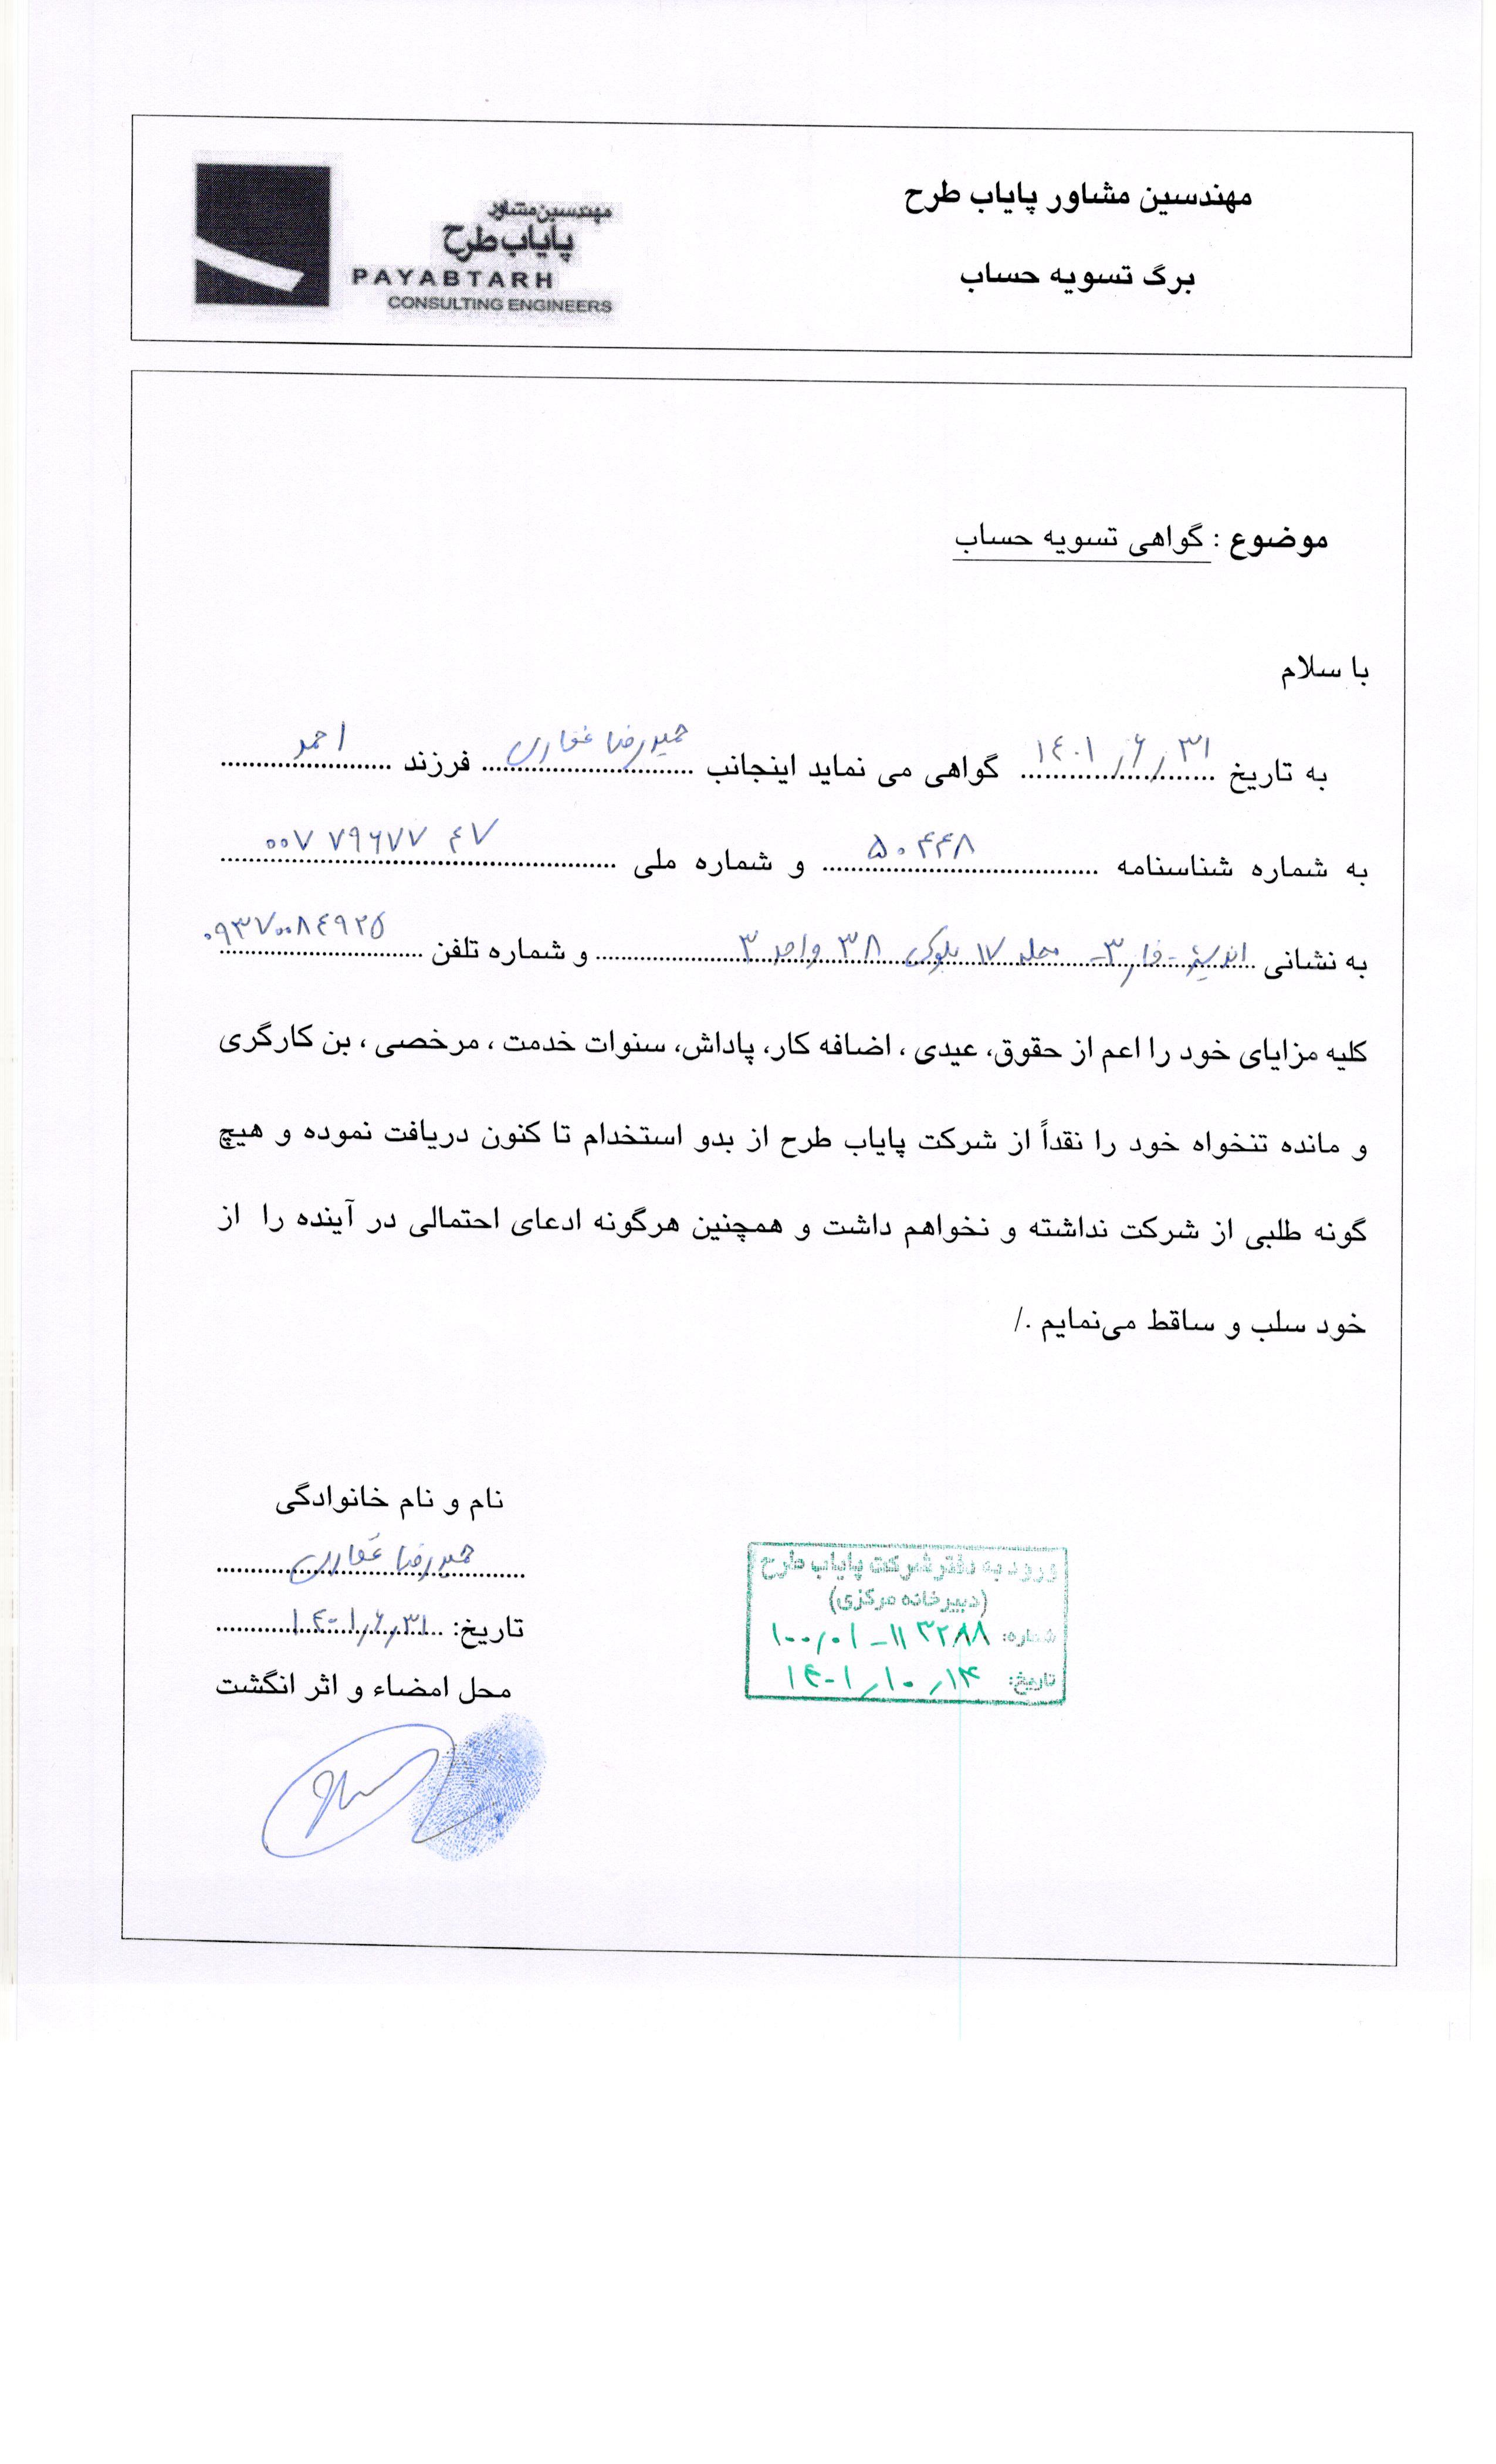 مهندسین مشاور پایاب طرح
برگ تسویه حساب
مهندسین مشاور
پایاب طرح
PAYABTARH
CONSULTING ENGINEERS
موضوع : گواهی تسویه حساب
با سلام
به تاریخ ۱۴۰۱/۶/۳۱ گواهی می نماید اینجانب حمیدرضا غفاری فرزند احمد
به شماره شناسنامه ۵۰۴۴۸ و شماره ملی ۰۰۷۷۹۶۷۷۴۷
به نشانی اندیشه - فاز ۳ - محله ۱۷ بلوک ۳۸ واحد ۳ و شماره تلفن ۰۹۳۷۰۰۸۴۹۲۵
کلیه مزایای خود را اعم از حقوق، عیدی ، اضافه کار، پاداش، سنوات خدمت ، مرخصی ، بن کارگری
و مانده تنخواه خود را نقداً از شرکت پایاب طرح از بدو استخدام تا کنون دریافت نموده و هیچ
گونه طلبی از شرکت نداشته و نخواهم داشت و همچنین هرگونه ادعای احتمالی در آینده را از
خود سلب و ساقط می‌نمایم ./
نام و نام خانوادگی
حمیدرضا غفاری
تاریخ: ۱۴۰۱/۶/۳۱
محل امضاء و اثر انگشت
ورود به دفتر شرکت پایاب طرح
(دبیرخانه مرکزی)
شماره: ۱۰۰/۰۱-۱۱۳۲۸۸
تاریخ: ۱۴۰۱/۱۰/۱۴